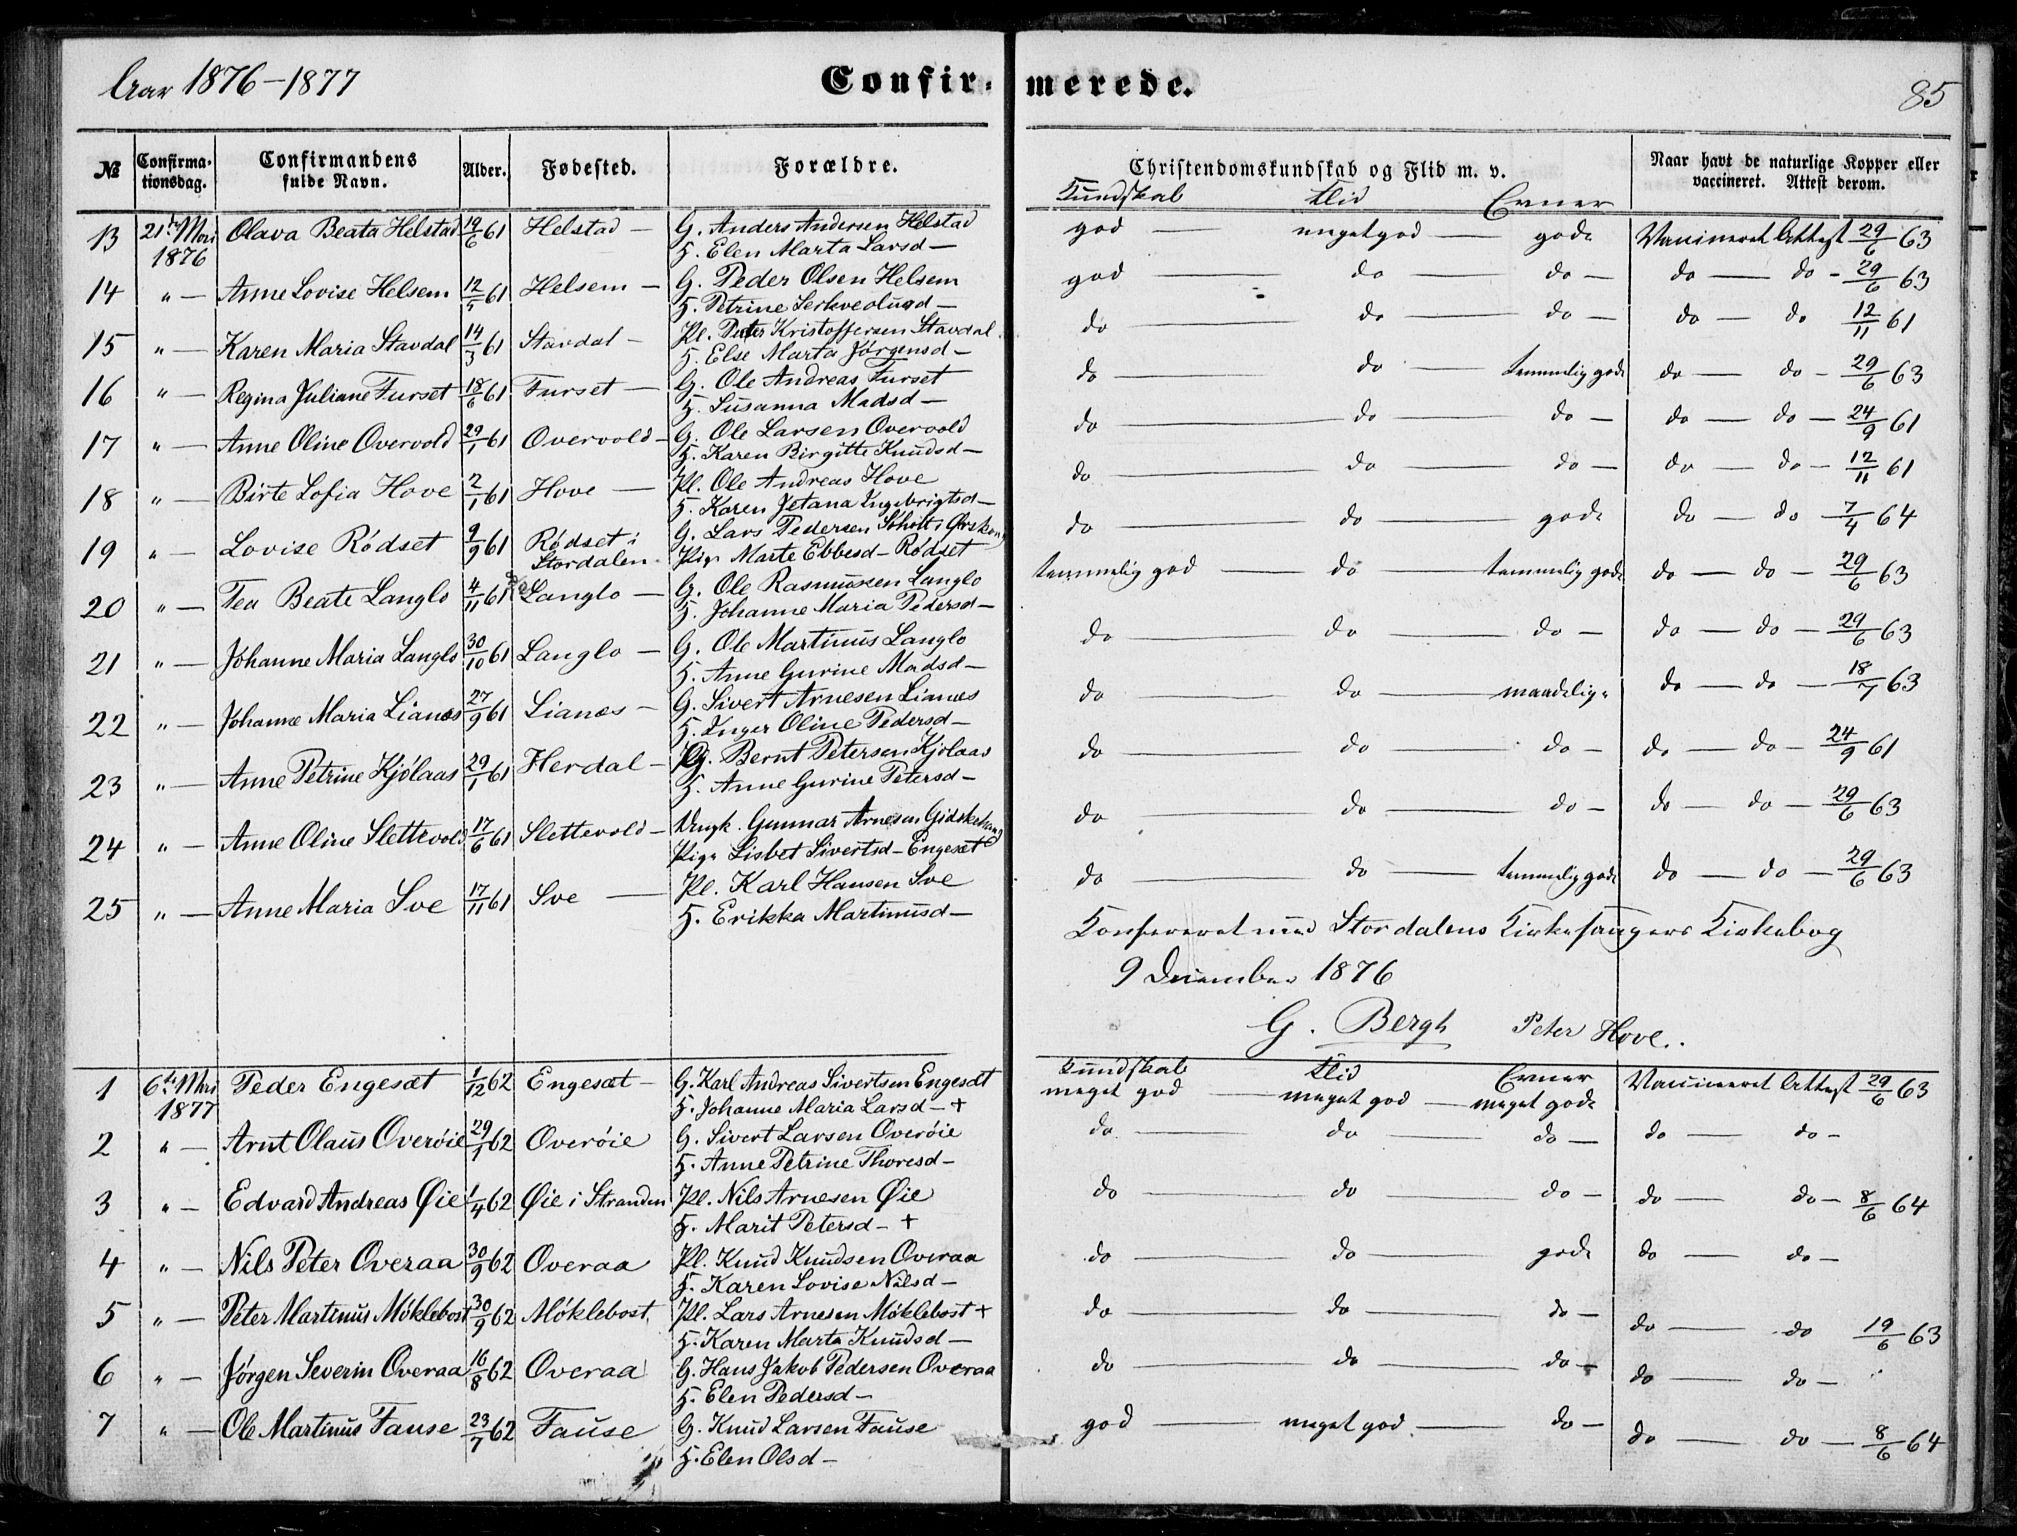 Aar 1876-1877 Confirmerede. 85
№ Confirmationsdag. Confirmandens fulde Navn. Alder. Fødested. Forældre. Christendomskundskab og Flid m. v. Naar havt de naturlige Kopper eller vaccineret. Attest derom.
Kundskab Flid Evner
13 21de Mai 1876 Olava Beata Helstad 19/6 61 Helstad — G. Anders Andersen Helstad god — meget god — gode Vaccineret Attest 29/6 63
H. Elen Marta Larsd —
14 " — Anne Lovise Helsem 12/5 61 Helsem — G. Peder Olsen Helsem god — do — do — do — do - 29/6 63
H. Petrine
15 " — Karen Maria Stavdal 14/3 61 Stavdal — Pl. Peter Kristoffersen Stavdal do — do — do — do — do 12/11 61
H. Else Marta Jørgensd —
16 " — Regina Juliane Furset 18/6 61 Furset — G. Ole Andreas Furset do — do — temmelig gode do — do - 29/6 63
H. Susanna Madsd —
17 " — Anne Oline Overvold 29/1 61 Overvold — G. Ole Larsen Overvold do — do — do — do — do - 24/9 61
H. Karen Birgitte Knudsd —
18 " — Birte Sofia Hove 2/1 61 Hove — Pl. Ole Andreas Hove do — do — do — do — do - 12/11 61
H. Karen Jetana Ingebrigtsd —
19 " — Lovise Rødset 9/9 61 Rødset i Stordalen G. Lars Pedersen Soholt i Ørskoug do — do — gode do — do 7/4 64
Pige Marte Ebbesd — Rødset
20 " — Tea Beate Langlo 4/11 61 Langlo — G. Ole Rasmussen Langlo temmelig god — do — temmelig gode do — do - 29/6 63
H. Johanne Maria Pedersd —
21 " — Johanne Maria Langlo 30/10 61 Langlo — G. Ole Martinus Langlo do — do — do — do — do - 29/6 63
H. Anne Gurine Madsd —
22 " — Johanne Maria Lianæs 27/9 61 Lianæs — G. Sivert Arnesen Lianæs do — do — maadelige do — do - 18/7 63
H. Inger Oline Pedersd —
23 " — Anne Petrine Kjølaas 29/1 61 Herdal — G. Bernt Petersen Kjølaas do — do — do — do — do - 24/9 61
H. Anne Gurine Petersd —
24 " — Anne Oline Slettevold 17/6 61 Slettevold — Ungk. Gunnar Arnesen Gidskehaug do — do — do — do — do - 29/6 63
Pige Lisbet Sivertsd — Engesæt
25 " — Anne Maria Sve 17/11 61 Sve — Pl. Karl Hansen Sve do — do — temmelig gode do — do - 29/6 63
H. Erikka Martinusd —
Konfereret med Stordalens Kirkesangers Kirkebog
9 December 1876
G. Bergh Peter Hove.
Kundskab Flid Evner
1 6te Mai 1877 Peder Engesæt 1/12 62 Engesæt — G. Karl Andreas Sivertsen Engesæt meget god — meget god — meget gode Vaccineret Attest 29/6 63
H. Johanne Maria Larsd — +
2 " — Arnt Olaus Overøie 29/1 62 Overøie G. Sivert Larsen Overøie do — do — do — do — do -
H. Anne Petrine Thoresd —
3 " — Edvard Andreas Øie 1/4 62 Øie i Stranden Pl. Nils Arnesen Øie do — do — do — do — do - 8/6 64
H. Marit Petersd — +
4 " — Nils Peter Overaa 30/9 62 Overaa Pl. Knud Knudsen Overaa do — do — gode do — do -
H. Karen Lovise Nilsd —
5 " — Peter Martinus Møklebost 30/9 62 Møklebost Pl. Lars Arnesen Møklebost + do — do — do — do — do 19/6 63
H. Karen Marta Knudsd —
6 " — Jørgen Severin Overaa 16/8 62 Overaa G. Hans Jakob Pedersen Overaa do — do — do — do — do -
H. Elen Pedersd —
7 " — Ole Martinus Fause 23/7 62 Fause G. Knud Larsen Fause god — meget god — do — do — do - 8/6 64
H. Elen Olsd —